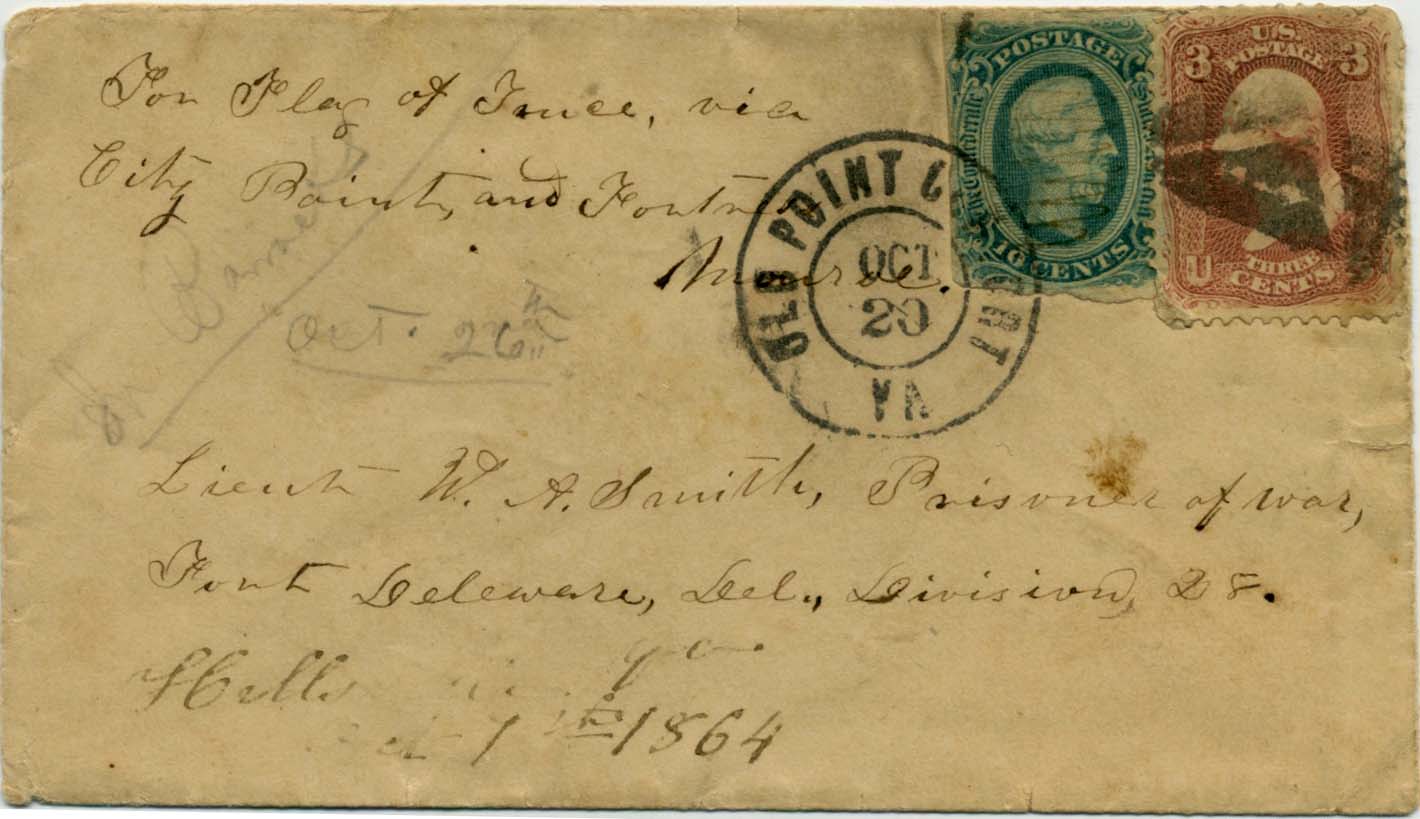 For Flag of Truce, via
City Point, and Fortress
Monroe.
Oct. 26th
OLD POINT COMFORT
OCT
20
VA
POSTAGE
The Confederate States of America
10 CENTS
3 U.S. 3
POSTAGE
U
THREE
CENTS
Lieut W. A. Smith, Prisoner of war,
Fort Deleware, Del., Division, 28.
Hills
1864